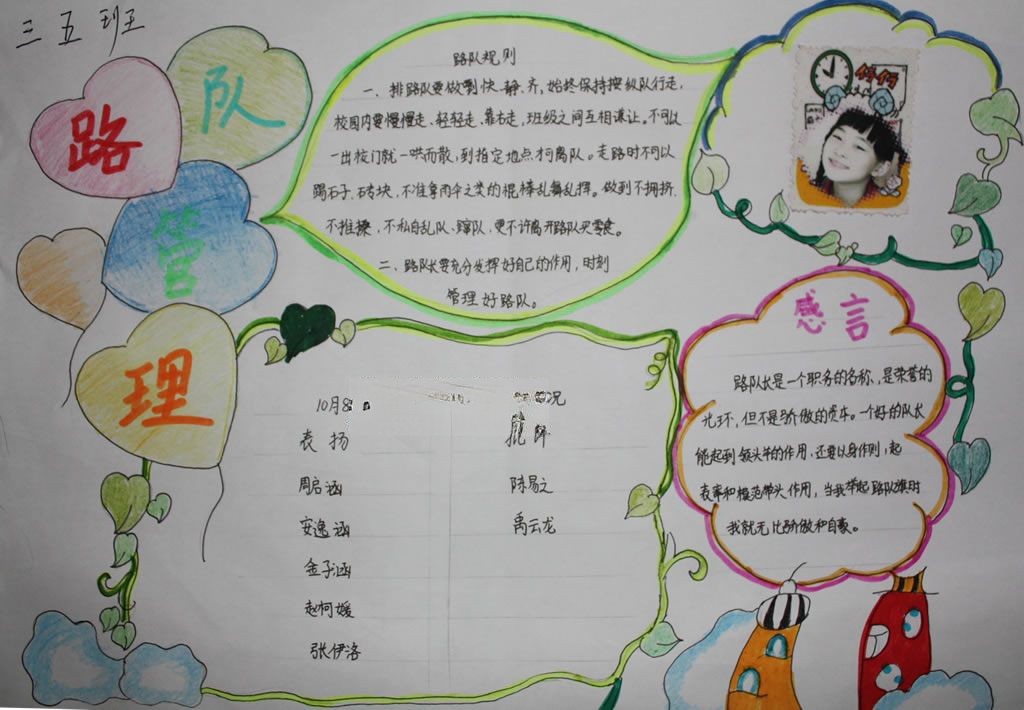 三五班
路
队
管
理
路队规则
一、排路队要做到快、静、齐,始终保持按纵队行走,
校园内要慢慢走、轻轻走、靠右走,班级之间互相谦让。不可以
一出校门就一哄而散,到指定地点才可离队。走路时不可以
踢石子、砖块,不准拿雨伞之类的棍棒乱舞乱挥。做到不拥挤、
不推搡,不私自乱队、蹿队,更不许离开路队买零食。
二、路队长要充分发挥好自己的作用,时刻
管理好路队。
感言
路队长是一个职务的名称,是荣誉的
光环,但不是骄傲的资本。一个好的队长
能起到领头羊的作用,还要以身作则,起
表率和模范带头作用,当我举起路队旗时
我就无比骄傲和自豪。
10月8 况
表扬 批
周启涵 陈易之
安逸涵 禹云龙
金子涵
赵柯媛
张伊洛